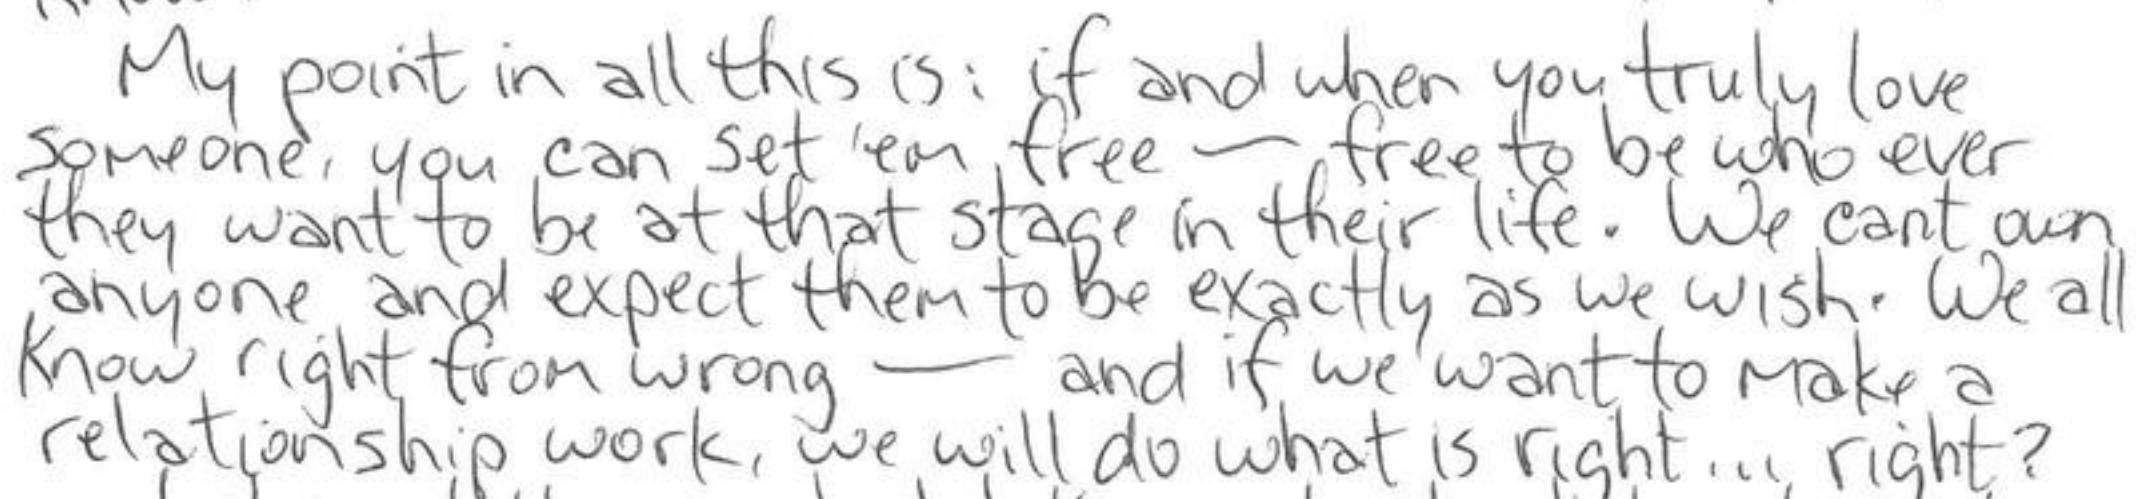 My point in all this is: if and when you truly love
someone, you can set 'em free — free to be who ever
they want to be at that stage in their life. We cant own
anyone and expect them to be exactly as we wish. We all
know right from wrong — and if we want to make a
relationship work, we will do what is right... right?